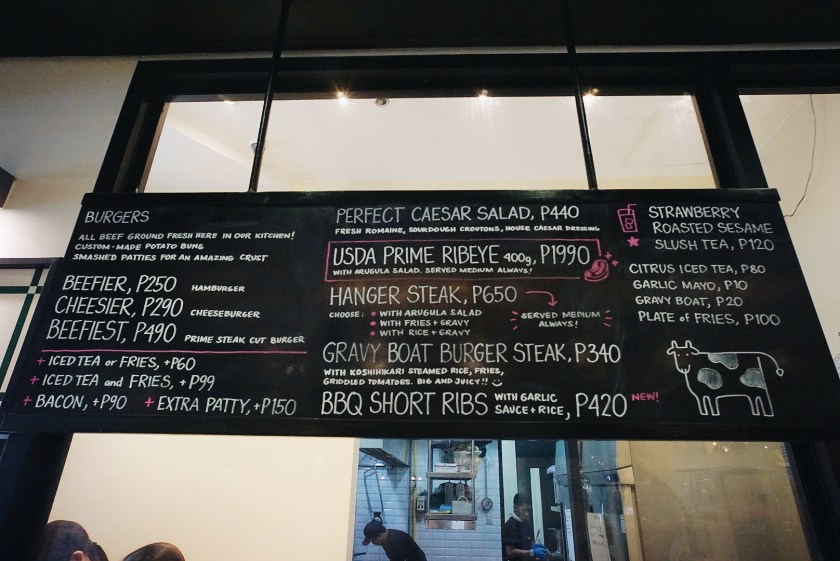 BURGERS
ALL BEEF GROUND FRESH HERE IN OUR KITCHEN!
CUSTOM-MADE POTATO BUNS
SMASHED PATTIES FOR AN AMAZING CRUST
BEEFIER, P250 HAMBURGER
CHEESIER, P290 CHEESEBURGER
BEEFIEST, P490 PRIME STEAK CUT BURGER
+ ICED TEA or FRIES, +P60
+ ICED TEA and FRIES, +P99
+ BACON, +P90 + EXTRA PATTY, +P150
PERFECT CAESAR SALAD, P440
FRESH ROMAINE, SOURDOUGH CROUTONS, HOUSE CAESAR DRESSING
USDA PRIME RIBEYE 400g, P1990
WITH ARUGULA SALAD. SERVED MEDIUM ALWAYS!
HANGER STEAK, P650
CHOOSE: • WITH ARUGULA SALAD
• WITH FRIES + GRAVY
• WITH RICE + GRAVY
SERVED MEDIUM
ALWAYS!
GRAVY BOAT BURGER STEAK, P340
WITH KOSHIHIKARI STEAMED RICE, FRIES,
GRIDDLED TOMATOES. BIG AND JUICY!!
BBQ SHORT RIBS WITH GARLIC
SAUCE + RICE, P420 NEW!
STRAWBERRY
ROASTED SESAME
SLUSH TEA, P120
CITRUS ICED TEA, P80
GARLIC MAYO, P10
GRAVY BOAT, P20
PLATE of FRIES, P100